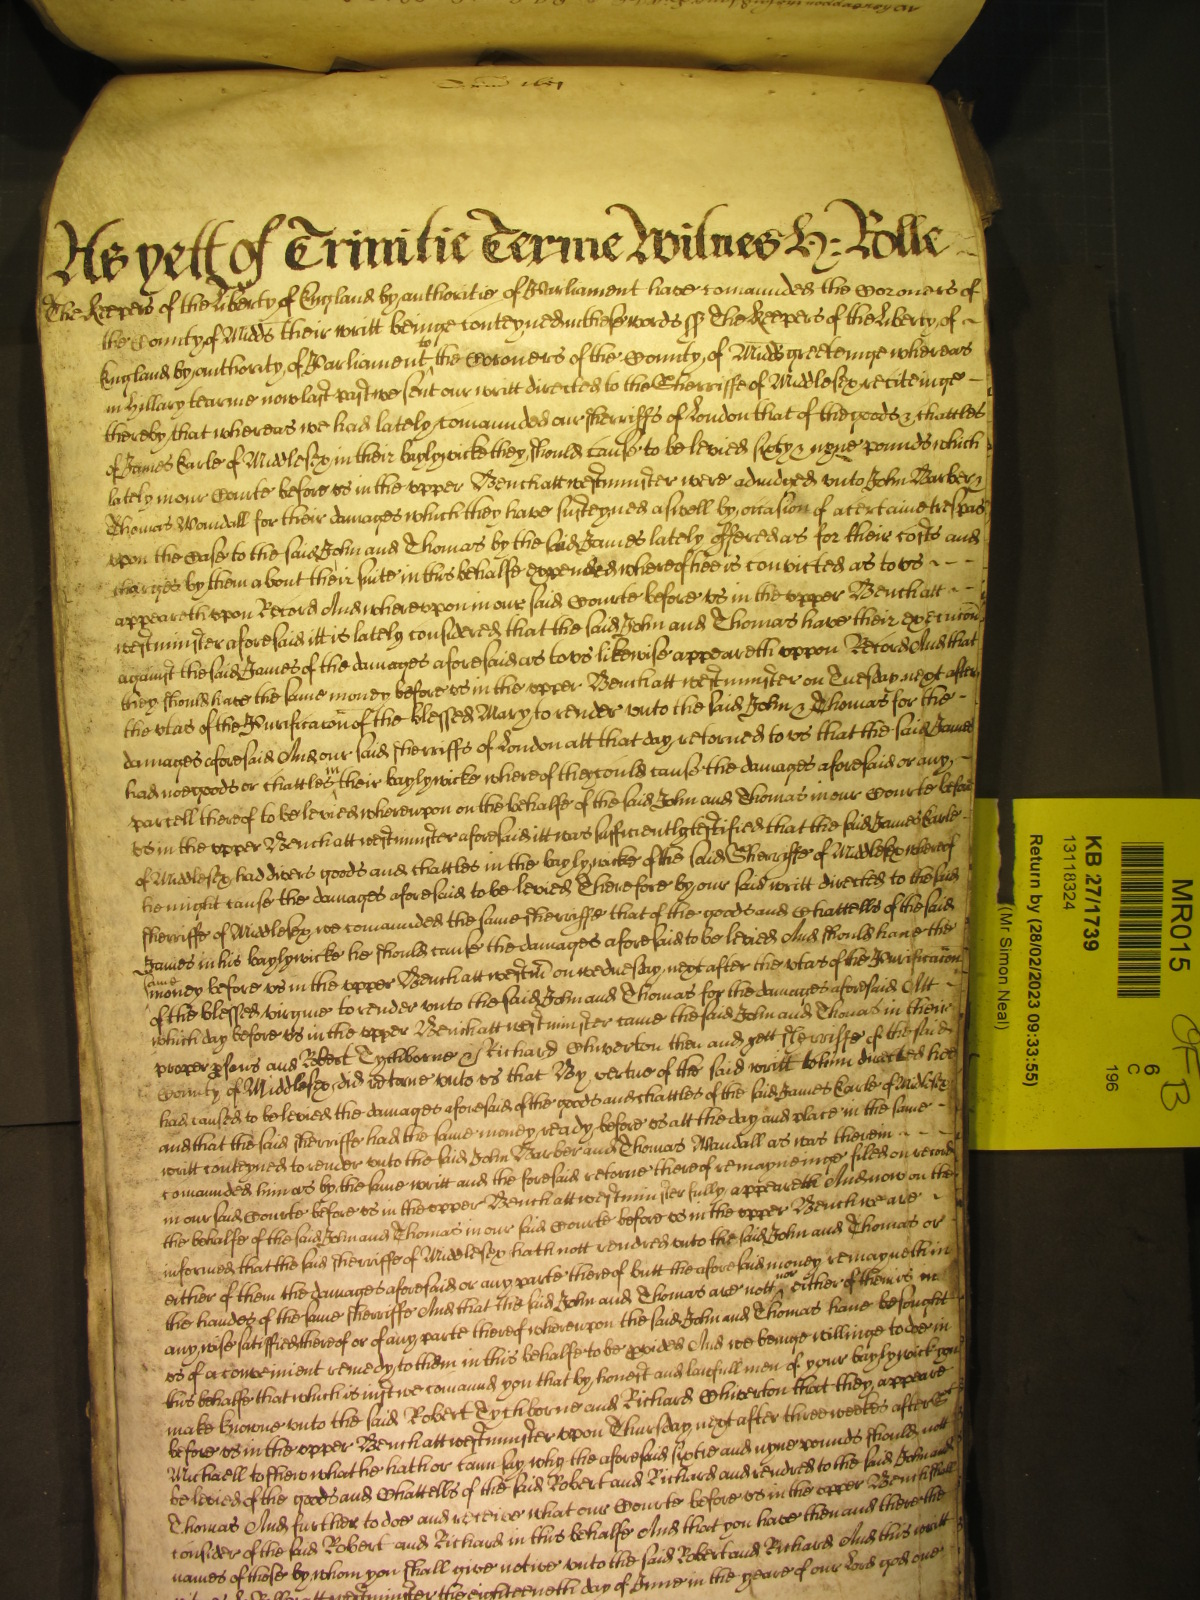 Anno 1651
As yett of Trinitie Terme Witnes H: Rolle
The Keepers of the Liberty of England by authoritie of Parliament have comaunded the Coroners of
the County of Midds their writt beinge conteyned in these words ss The Keepers of the Liberty of
England by authority of Parliament to the Coroners of the County of Midds greeteinge whereas
in Hillary tearme now last past we sent our writt directed to the Sherriffe of Middlesex reciteinge
thereby that whereas we had lately comaunded our sherriffs of London that of the goods & chattles
of James Earle of Middlesex in their baylywicke they should cause to be levied sixty & nyne pounds which
lately in our Courte before us in the upper Bench att westminster were adiudged unto John Barber &
Thomas Wandall for their damages which they have susteyned aswell by occasion of a certaine trespas
upon the Case to the said John and Thomas by the said James lately offered as for their costs and
charges by them about their suite in this behalfe expended whereof hee is convicted as to us
appeareth upon Record And whereupon in our said Courte before us in the upper Bench att
westminster aforesaid itt is lately considered that the said John and Thomas have their execucon
against the said James of the damages aforesaid as to us likewise appeareth uppon Record And that
they should have the same money before us in the upper Bench att westminster on Tuesday next after
the utas of the Purificacon of the blessed Mary to render unto the said John & Thomas for the
damages aforesaid And our said sherriffs of London att that day retorned to us that the said James
had noe goods or chattles in their baylywicke whereof they could cause the damages aforesaid or any
parcell thereof to be levied whereupon on the behalfe of the said John and Thomas in our Courte before
us in the upper Bench att westminster aforesaid itt was sufficiently testified that the said James Earle
of Middlesex had divers goods and chattles in the baylywicke of the said Sherriffe of Middlesex whereof
he might cause the damages aforesaid to be levied Therefore by our said writt directed to the said
sherriffe of Middlesex we comaunded the same sherriffe that of the goods and Chattells of the said
James in his baylywicke he should cause the damages aforesaid to be levied And should have the
same money before us in the upper Bench att westm on wednesday next after the utas of the Purificacon
of the blessed virgine to render unto the said John and Thomas for the damages aforesaid Att
which day before us in the upper Bench att westminster came the said John and Thomas in their
proper psons and Robert Tychborne & Richard Chiverton then and yett sherriffe of the said
County of Middlesex did retorne unto us that By vertue of the said writt to him directed hee
had caused to be levied the damages aforesaid of the goods and chattles of the said James Earle of Middlesex
and that the said sherriffe had the same money ready before us att the day and place in the same
writt conteyned to render unto the said John Barber and Thomas Wandall as was therein
comaunded him as by the same writt and the foresaid retorne thereof remayneinge filed on record
in our said Courte before us in the upper Bench att westminster fully appeareth And now on the
the behalfe of the said John and Thomas in our said Courte before us in the upper Bench we are
informed that the said sherriffe of Middlesex hath nott rendred unto the said John and Thomas or
either of them the damages aforesaid or any parte thereof butt the aforesaid money remayneth in
the handes of the same sherriffe And that the said John and Thomas are nott nor either of them is in
any wise satisfied thereof or of any parte thereof whereupon the said John and Thomas have besought
us of a convenient remedy to them in this behalfe to be pvided And we beinge willinge to doe in
this behalfe that which is iust we comaund you that by honest and lawfull men of your baylywick you
make knowne unto the said Robert Tychborne and Richard Chiverton that they appeare
before us in the upper Bench att westminster upon Thursday next after three weekes after St
Michaell to shew what he hath or cann say why the aforesaid sixtie and nyne pounds should nott
be levied of the goods and Chattells of the said Robert and Richard and rendred to the said John and
Thomas And further to doe and receive what our Courte before us in the upper Bench shall
consider of the said Robert and Richard in this behalfe And that you have then and there the
names of those by whom you shall give notice unto the said Robert and Richard And this writt
Rolle att westminster the eighteeneth day of June in the yeare of our Lord god one
MR015
6
C
196
KB 27/1739
13118324
Return by (28/02/2023 09:33:55)
(Mr Simon Neal)